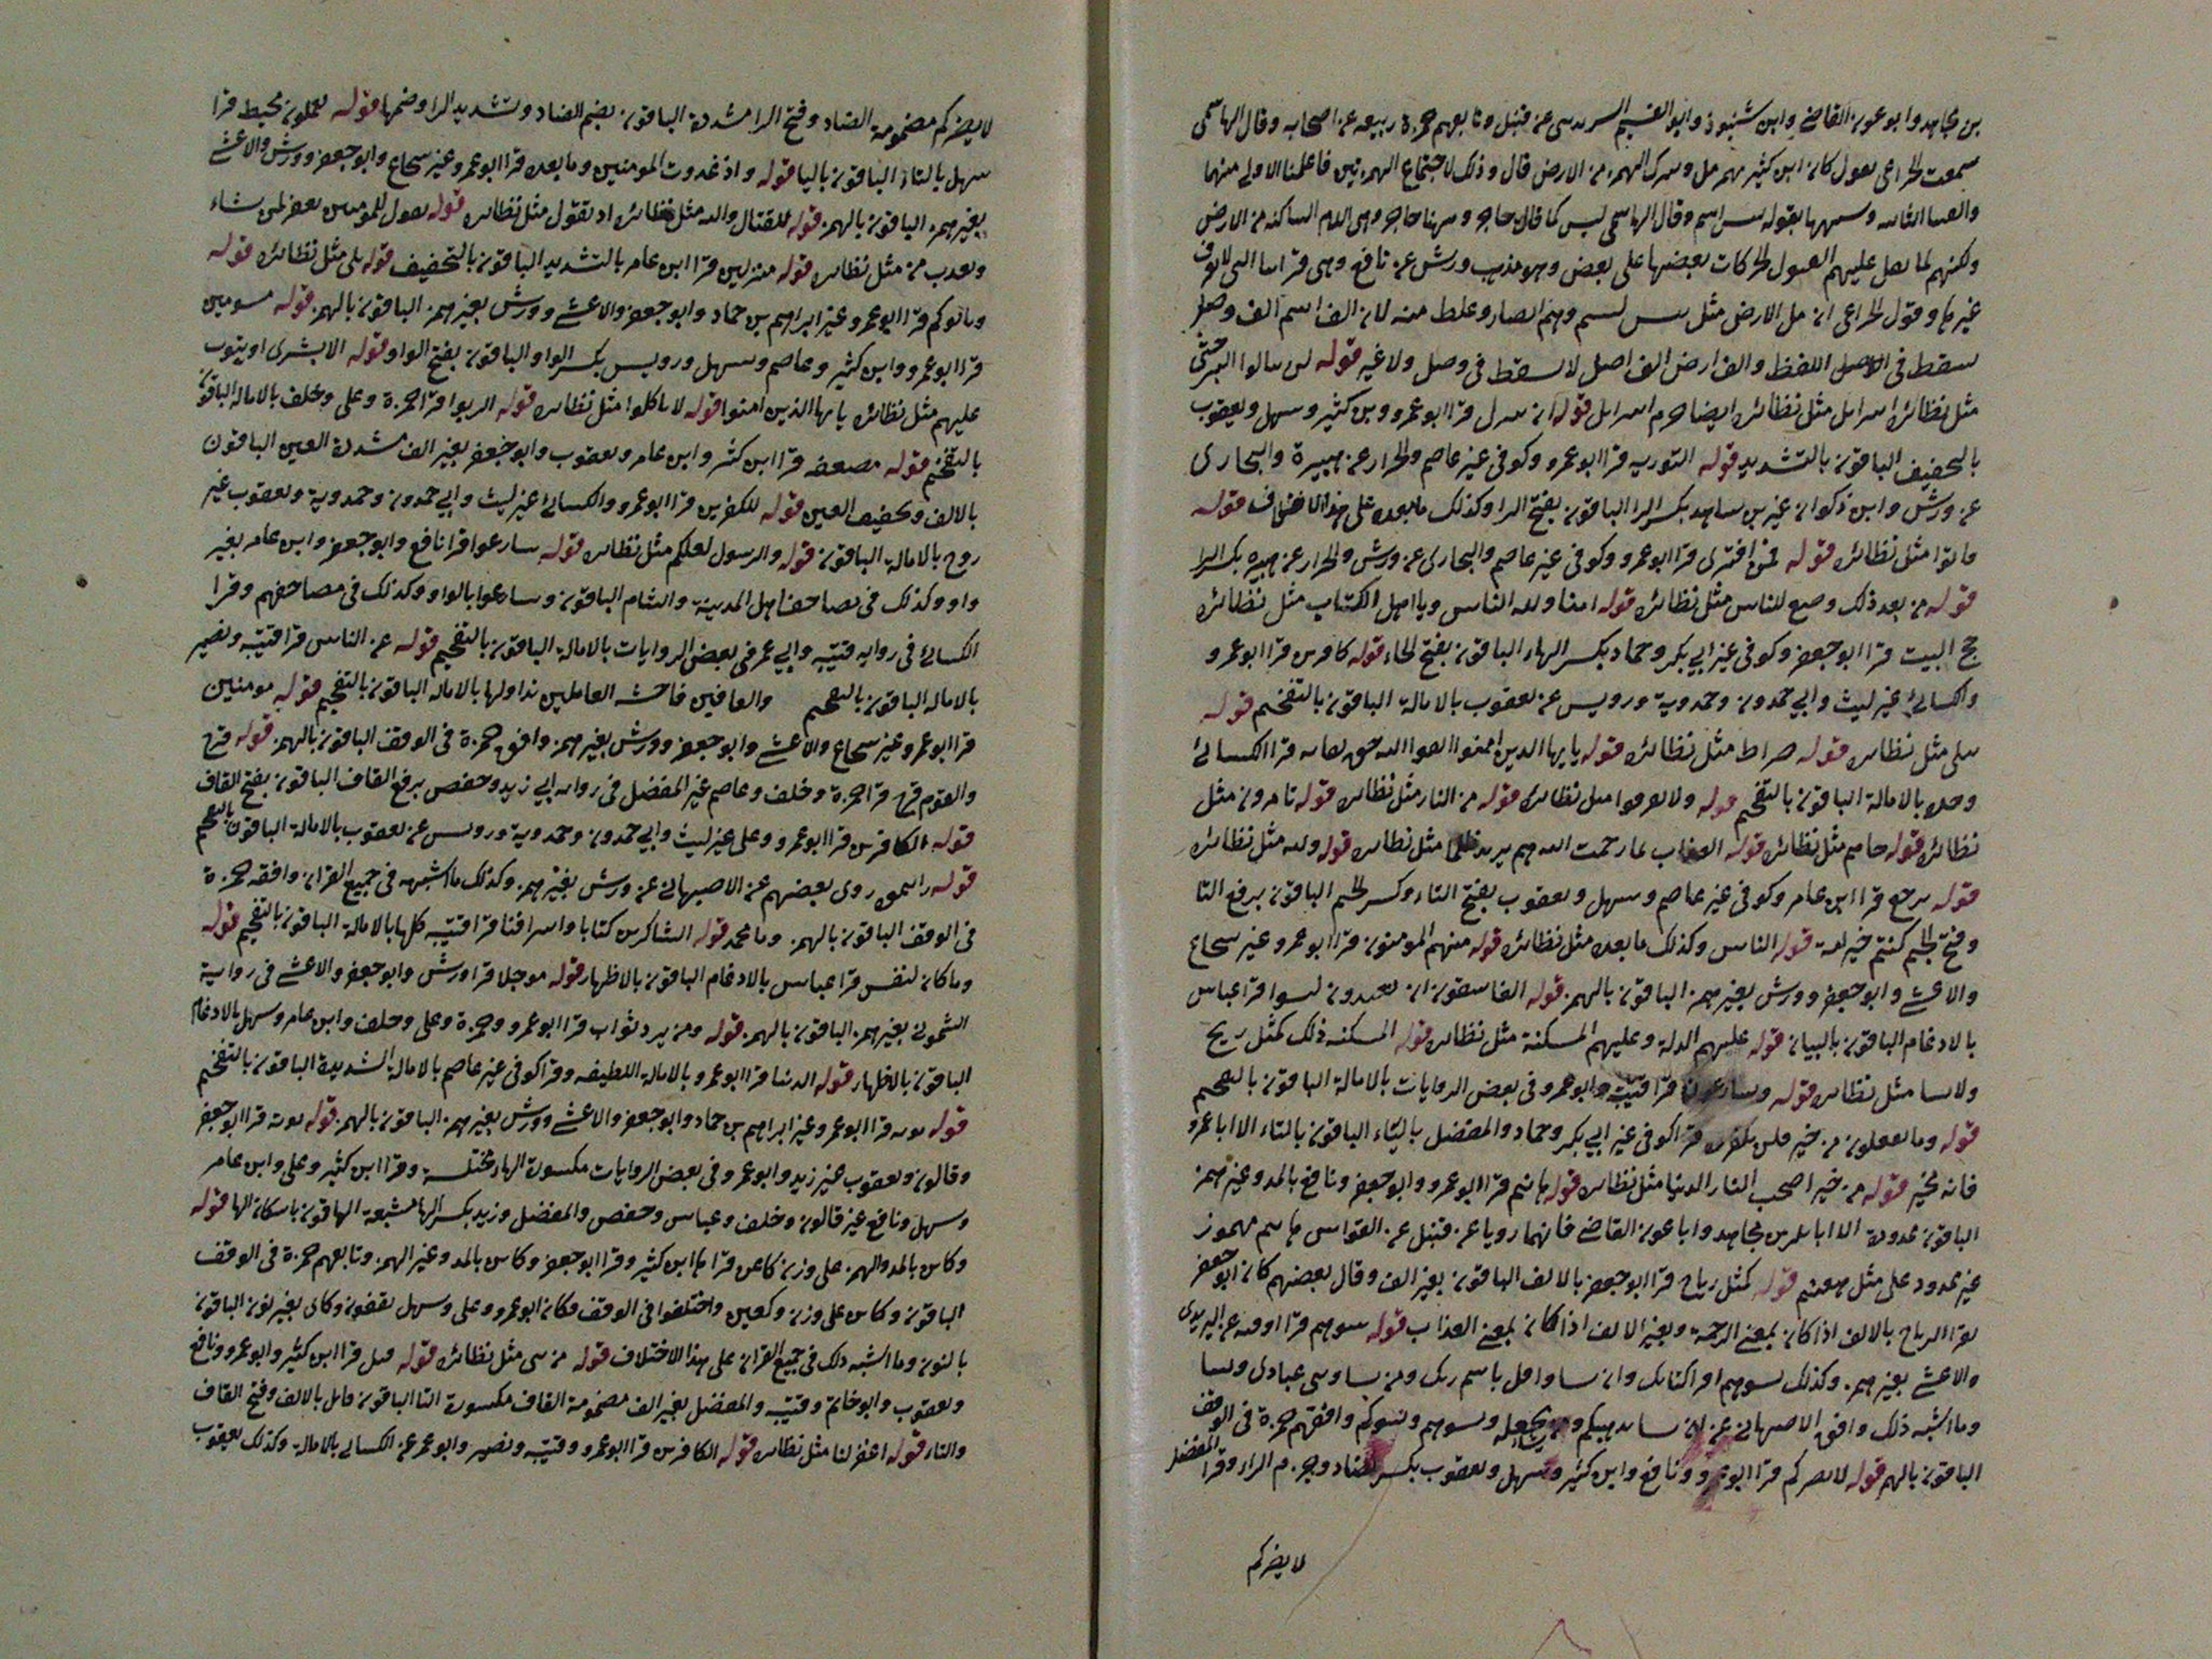 بن مجاهد وابو عون القاضي وابن شنبوذ وابو القسم السرندسى عن قنبل وتابعهم حمزة ربيعه عن اصحابه وقال الهاشمى
سمعت الخزاعى يقول كان ابن كثير يهمز مل وسرك الهمز من الارض قال وذلك لاجتماع الهمزتين فاعلمنا الاولى منهما
بقوله وقال الهاشمى ليس كما قال حاجز وههنا حاجز وهى اللام الساكنة من الارض
ولكنهم لما عليهم الحركات بعضها على بعض وهو مذهب ورش عن نافع وهى قراءتنا التى لا نعرف
غيرها وقول الخزاعى ان مل الارض مثل وهم وغلط منه لان الف اسم الف وصل
سقط فى الاصل اللفظ والف ارض الف اصل لا سقط فى وصل ولا غيره قوله لن تنالوا البر حتى
مثل نظائره اسرايل مثل نظائره ايضا حرم اسرايل قوله ان سرل قرا ابو عمرو وبن كثير وسهل ويعقوب
بالتحفيف الباقون بالتشديد قوله التوريه قرا ابو عمرو وكوفى غير عاصم والخزاز عن هبيرة والبخارى
عن ورش وابن ذكوان غير بن مجاهد بكسر الرا الباقون بفتح الرا وكذلك ما بعده على هذا الاختلاف قوله
فاتوا مثل نظائره قوله فمن افترى قرا ابو عمرو وكوفى غير عاصم والبخارى عن ورش والخزاز عن هبيره بكسر الرا
قوله من بعد ذلك وضع للناس مثل نظائره قوله امنا ولله الناس ويا اهل الكتاب مثل نظائره
حج البيت قرا ابو جعفر وكوفى غير ابي بكر وحماد بكسر الهاء الباقون بفتح الحاء قوله كافرين قرا ابو عمرو
والكسائي غير ليث وابي حمدون وحمدوية ورويس عن يعقوب بالامالة الباقون بالتفخيم قوله
تتلى مثل نظائره قوله صراط مثل نظائره قوله يايها الذين امنوا اتقوا الله حق تقاته قرا الكسائي
وحده بالامالة الباقون بالتفخيم قوله ولا تفرقوا مثل نظائره قوله من النار مثل نظائره قوله تامرون مثل
نظائره قوله جاءهم مثل نظائره قوله العذاب بما رحمت الله هم يريد ظلما مثل نظائره قوله ولله مثل نظائره
قوله ترجع قرا ابن عامر وكوفى غير عاصم وسهل ويعقوب بفتح التاء وكسر الجيم الباقون برفع التا
وفتح الجيم كنتم خير امة قوله الناس وكذلك ما بعده مثل نظائره قوله منهم المومنون قرا ابو عمرو غير سجاع
والاعشى وابو جعفر وورش بغير همز الباقون بالهمز قوله الفاسقون ان يعتدون ليسوا قرا عباس
بالادغام الباقون بالبيان قوله عليهم الذلة وعليهم المسكنة مثل نظائره قوله المسكنه ذلك كمثل ريح
مثل نظائره قوله ويسارعون قرا قتيبة وابو عمرو فى بعض الروايات بالامالة الباقون بالتفخيم
قوله وما تفعلون من خير فلن تكفروه قرا كوفى غير ابي بكر وحماد والمفضل بالياء الباقون بالتاء الا ابا عمرو
فانه يخير قوله من خير اصحب النار الدنيا مثل نظائره قوله هانتم قرا ابو عمرو وابو جعفر ونافع بالمد وغير همز
الباقون ممدودة الا ابا بكر بن مجاهد وابا عون القاضي فانهما رويا عن قنبل عن القواس هانتم مهموز
غير ممدود على مثل هعنتم قوله كمثل رياح قرا ابو جعفر بالالف الباقون بغير الف وقال بعضهم كان ابو جعفر
يقرا الرياح بالالف اذا كان بمعنى الرحمة وبغير الالف اذا كان بمعنى العذاب قوله تسوهم قرا اوقيه عن اليزيدى
والاعشى بغير همز وكذلك تسوهم اقرا كتابك وان نشا واقرا باسم ربك ومن يشا وهيى عبادى ونشا
وما اشبه ذلك وافق الاصبهاني عن ان يشا يذهبكم ومن يشا يجعله وتسوهم وتسوكم وافقهم حمزة فى الوقف
الباقون بالهمز قوله لا يضركم قرا ابو عمرو ونافع وابن كثير وسهل ويعقوب بكسر الضاد وجزم الراء وقرا المفضل
لا يضركم
لا يضركم مضمومة الضاد وفتح الرا مشددة الباقون بضم الضاد وتشديد الرا وضمها قوله يعملون محيط قرا
سهل بالتاء الباقون باليا قوله واذ غدوت المومنين وما بعده قرا ابو عمرو غير سجاع وابو جعفر وورش والاعشى
بغير همز الباقون بالهمز قوله للقتال والله مثل نظائره اذ تقول مثل نظائره قوله تقول للمومنين يغفر لمن يشاء
ويعذب من مثل نظائره قوله منزلين قرا ابن عامر بالتشديد الباقون بالتخفيف قوله بلى مثل نظائره قوله
وياتوكم قرا ابو عمرو غير ابراهيم بن حماد وابو جعفر والاعشى وورش بغير همز الباقون بالهمز قوله مسومين
قرا ابو عمرو وابن كثير وعاصم وسهل ورويس بكسر الواو الباقون بفتح الواو قوله الا بشرى او يتوب
عليهم مثل نظائره يايها الذين امنوا قوله لا تاكلوا مثل نظائره قوله الربوا قرا حمزة وعلى وخلف بالامالة الباقون
بالتفخيم قوله مضعفه قرا ابن كثير وابن عامر ويعقوب وابو جعفر بغير الف مشددة العين الباقون
بالالف وتخفيف العين قوله للكفرين قرا ابو عمرو والكسائي غير ليث وابي حمدون وحمدوية ويعقوب غير
روح بالامالة الباقون قوله والرسول لعلكم مثل نظائره قوله سارعوا قرا نافع وابو جعفر وابن عامر بغير
واو وكذلك فى مصاحف اهل المدينة والشام الباقون وسارعوا بالواو وكذلك فى مصاحفهم وقرا
الكسائي فى رواية قتيبه وابي عمر فى بعض الروايات بالامالة الباقون بالتفخيم قوله عن الناس قرا قتيبه ونصير
بالامالة الباقون بالتفخيم والعافين فاحشه العاملين نداولها بالامالة الباقون بالتفخيم قوله مومنين
قرا ابو عمرو غير سجاع والاعشى وابو جعفر وورش بغير همز وافق حمزة فى الوقف الباقون بالهمز قوله قرح
والقوم قرح قرا حمزة وخلف وعاصم غير المفضل فى رواية ابي زيد وحفص برفع القاف الباقون بفتح القاف
قوله الكافرين قرا ابو عمرو وعلى غير ليث وابي حمدون وحمدوية ورويس عن يعقوب بالامالة الباقون بالتفخيم
قوله رايتموه روى بعضهم عن الاصبهاني عن ورش بغير همز وكذلك ما اشبهه فى جميع القران وافقه حمزة
فى الوقف الباقون بالهمز وما محمد قوله الشاكرين كتابا واسرافنا قرا قتيبه كلها بالامالة الباقون بالتفخيم قوله
وما كان لنفس قرا عباس بالادغام الباقون بالاظهار قوله موجلا قرا ورش وابو جعفر والاعشى فى رواية
الشموني بغير همز الباقون بالهمز قوله ومن يرد ثواب قرا ابو عمرو وحمزة وعلى وخلف وابن عامر وسهل بالادغام
الباقون بالاظهار قوله الدنيا قرا ابو عمرو بالامالة اللطيفه وقرا كوفى غير عاصم بالامالة الشديدة الباقون بالتفخيم
قوله نوته قرا ابو عمرو غير ابراهيم بن حماد وابو جعفر والاعشى وورش بغير همز الباقون بالهمز قوله نوته قرا ابو جعفر
وقالون ويعقوب غير زيد وابو عمرو فى بعض الروايات مكسورة الهاء مختلسة وقرا ابن كثير وعلى وابن عامر
وسهل ونافع غير قالون وخلف وعباس وحفص والمفضل وزيد بكسر الها مشبعة الباقون باسكان الها قوله
وكاين بالمد والهمز على وزن كاعن قراها ابن كثير وقرا ابو جعفر وكاين بالمد وغير الهمز وتابعهم حمزة فى الوقف
الباقون وكاين على وزن وكعين واختلفوا فى الوقف فكان ابو عمرو وعلى وسهل يقفون وكاى بغير نون الباقون
بالنون وما اشبه ذلك فى جميع القران على هذا الاختلاف قوله من نبى مثل نظائره قوله قتل قرا ابن كثير وابو عمرو ونافع
ويعقوب وابو حاتم وقتيبه والمفضل بغير الف مضمومة القاف مكسورة التا الباقون قاتل بالالف وفتح القاف
والتاء قوله اغفر لنا مثل نظائره قوله الكافرين قرا ابو عمرو وقتيبه ونصير وابو عمر عن الكسائي بالامالة وكذلك يعقوب